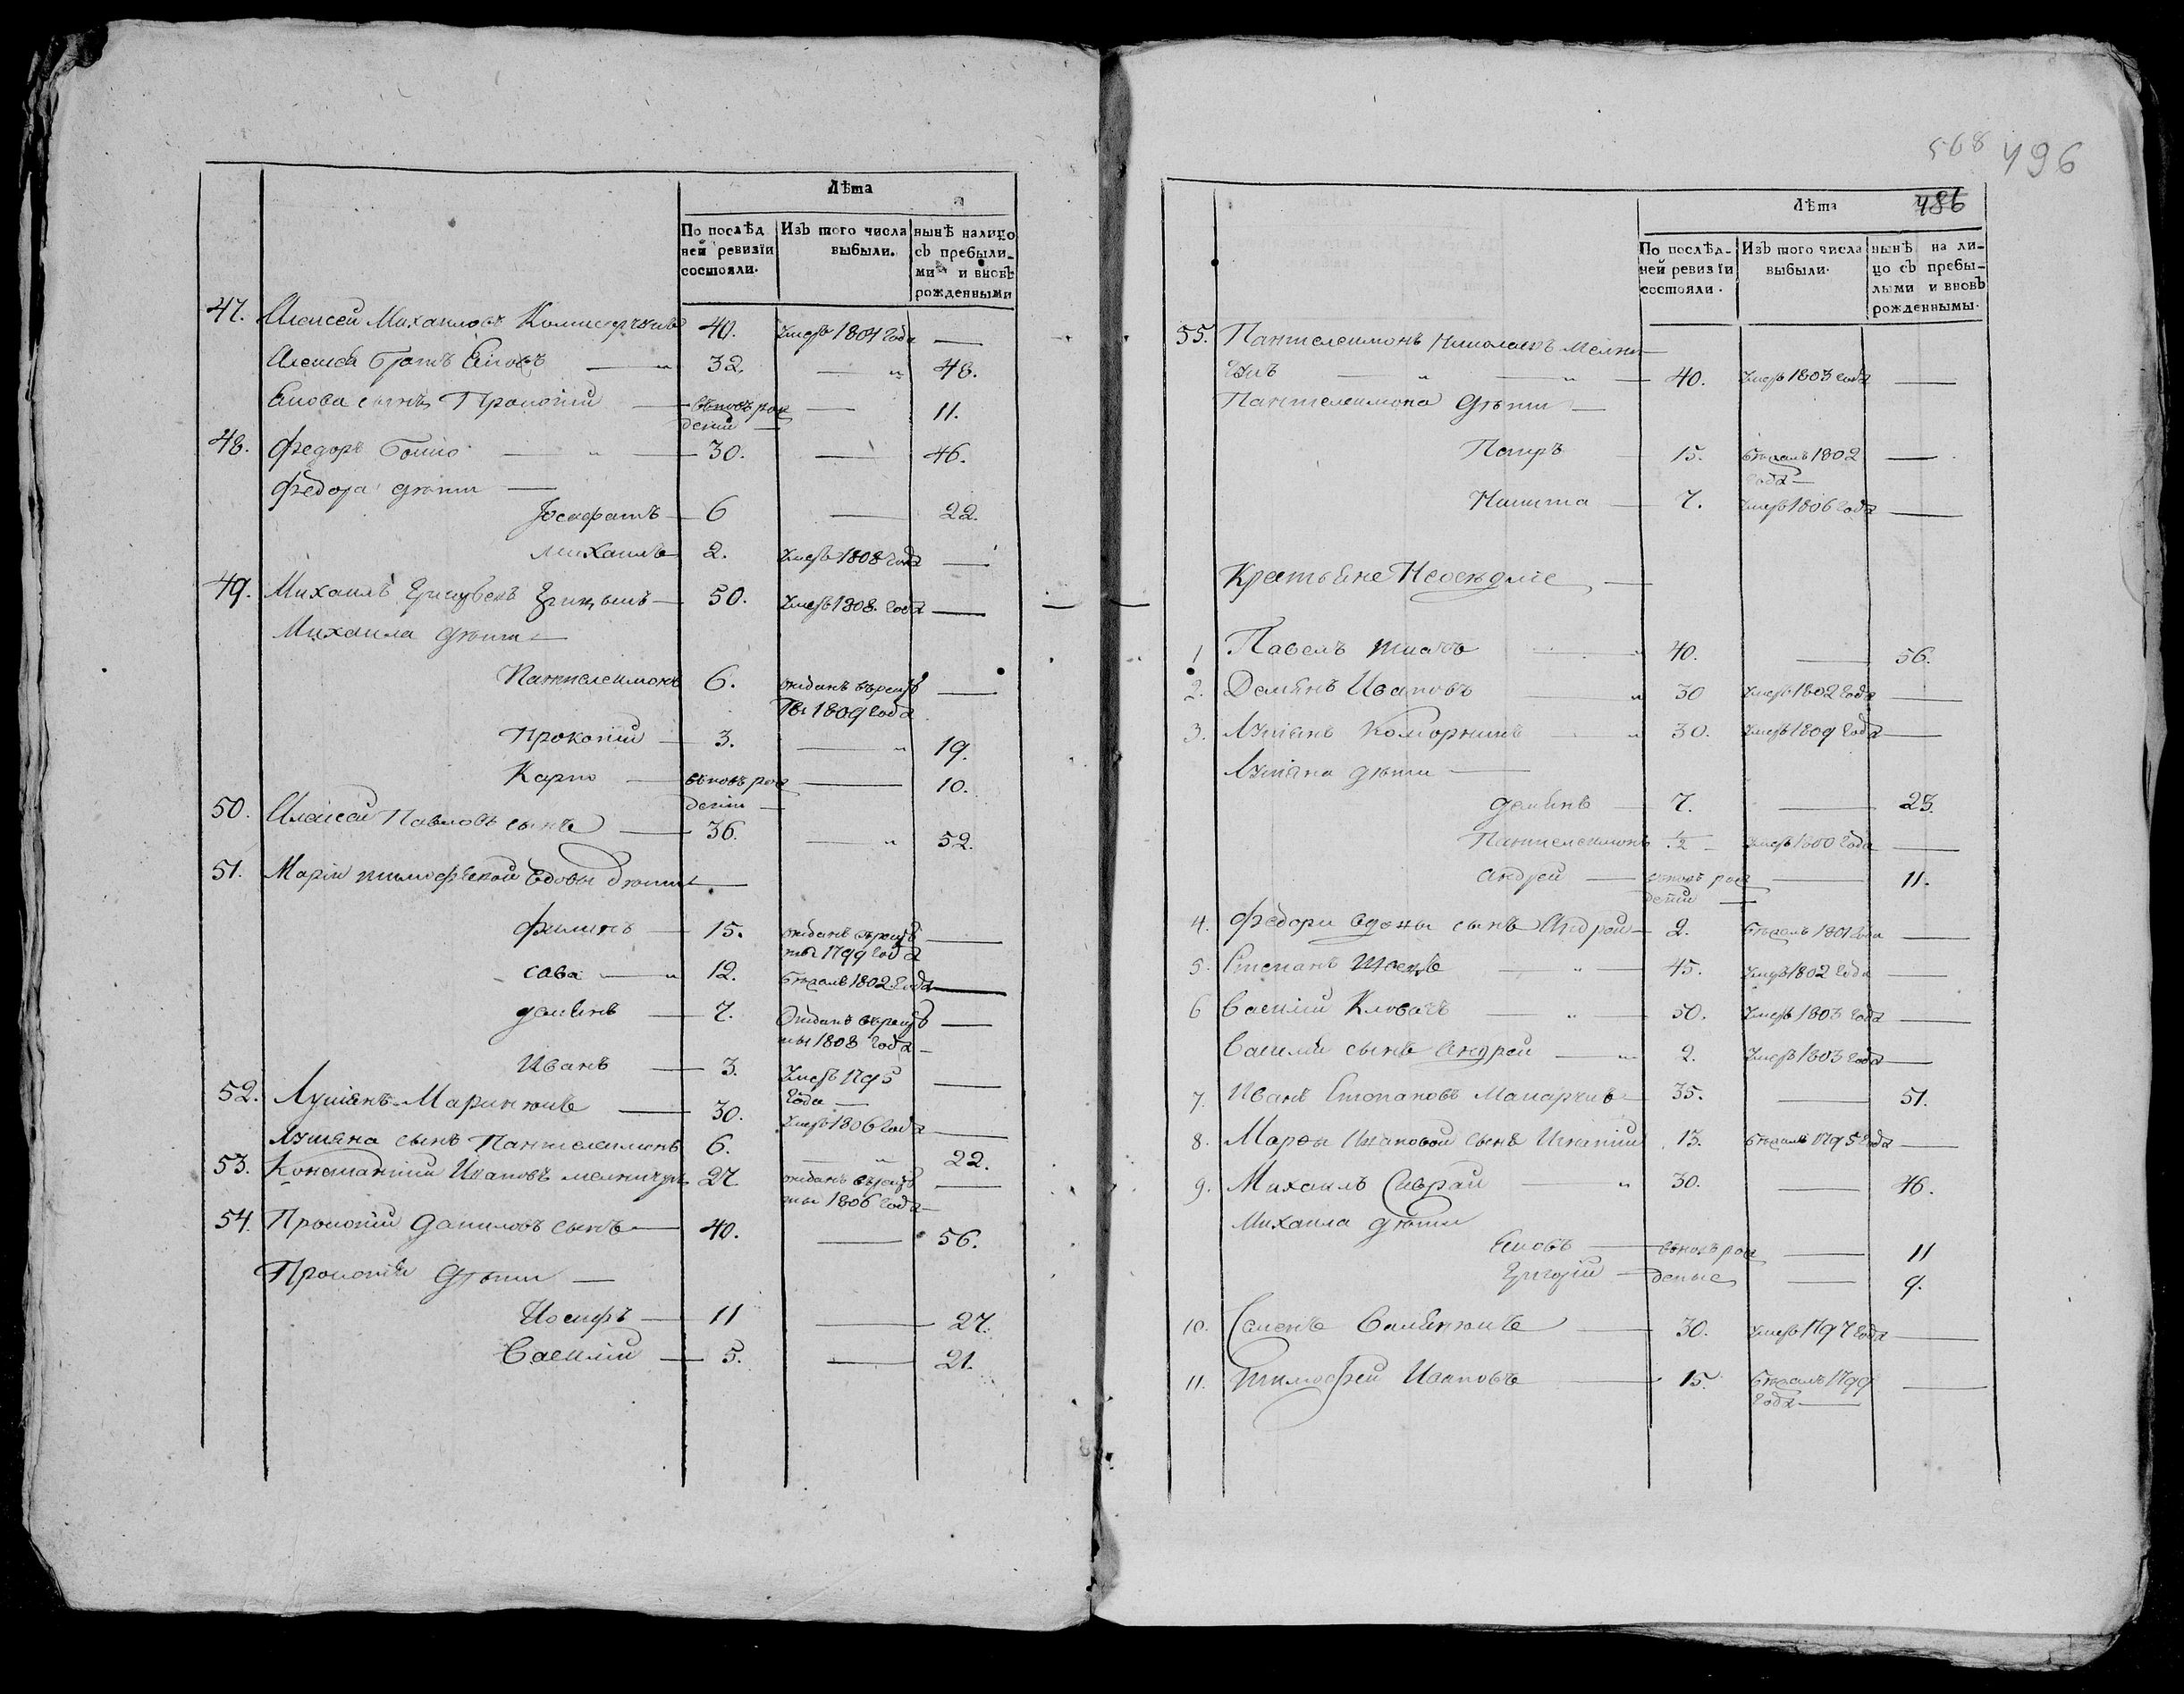 Лѣта
По послѣд
ней ревизїи
состояли.
Изъ того числа
выбыли.
нынѣ налицо
съ пребыли-
ми и вновь
рожденными
47. Алексей Михаиловъ 40. умеръ 1804 года —
Алексея братъ Яковъ — 32. — 48.
Якова сынъ Прокопiй — вновь рож
денъ — 11.
48. Федоръ Бойко — 30. — 46.
Федора дѣти —
Iосафатъ — 6 — 22.
Михаилъ 2. умеръ 1808 года —
49. Михаилъ 50. умеръ 1808 года —
Михаила дѣти —
Пантелеимонъ 6. отданъ въ рекру
ты 1809 года —
Прокопiй — 3. — 19.
Карпо — вновь рож
денъ — 10.
50. Алексей Павловъ сынъ — 36. — 52.
51. Марiи тимофѣевой вдовы дѣти —
филипъ — 15. отданъ въ рекру
ты 1799 года —
сава — 12. бѣжалъ 1802 года —
демянъ — 7. Отданъ въ рекру
ты 1808 года —
Иванъ — 3. умеръ 1795
года —
52. Лукiянъ Маринюкъ — 30. умеръ 1806 года —
Лукiяна сынъ Пантелеимонъ 6. — 22.
53. Константiй Ивановъ мелничукъ 27. отданъ въ рекру
ты 1806 года —
54. Прокопiй даниловъ сынъ — 40. — 56.
Прокопiя дѣти —
Иосифъ — 11 — 27.
Василiй — 5. — 21.
568 496
486
Лѣта
По послѣд-
ней ревизїи
состояли.
Изъ того числа
выбыли.
нынѣ на ли-
цо съ пребы-
лыми и вновь
рожденнымы.
55. Пантелеимонъ Николаевъ Мелни-
чукъ — 40. умеръ 1803 года —
Пантелеимона дѣти —
Петръ 15. бѣжалъ 1802
года —
Никита — 7. умеръ 1806 года —
Крестьяне Неоседлiе —
1 Павелъ ткачъ 40. — 56.
2. Демянъ Ивановъ 30 умеръ 1802 года —
3. Лукiянъ Коморникъ 30. умеръ 1809 года —
Лукiяна дѣти —
демянъ — 7. — 23.
Пантелеимонъ ½ — умеръ 1800 года —
андрей — вновь рож
денъ — 11.
4. федори вдовы сынъ Андрей — 2. бѣжалъ 1801 года —
5. Степанъ Швецъ — 45. умеръ 1802 года —
6 Василiй Ковачъ — 50. умеръ 1803 года —
Василiя сынъ андрей — 2. умеръ 1803 года —
7. Иванъ Степановъ — 35. — 51.
8. Марфы сынъ Игнатiй 13. бѣжалъ 1795 года —
9. Михаилъ 30. — 46.
Михаила дѣти
Яковъ — вновь рож — 11
Григорiй — деные — 9.
10. Семенъ — 30. умеръ 1797 года —
11. Тимофей Ивановъ — 15. бѣжалъ 1799
года —